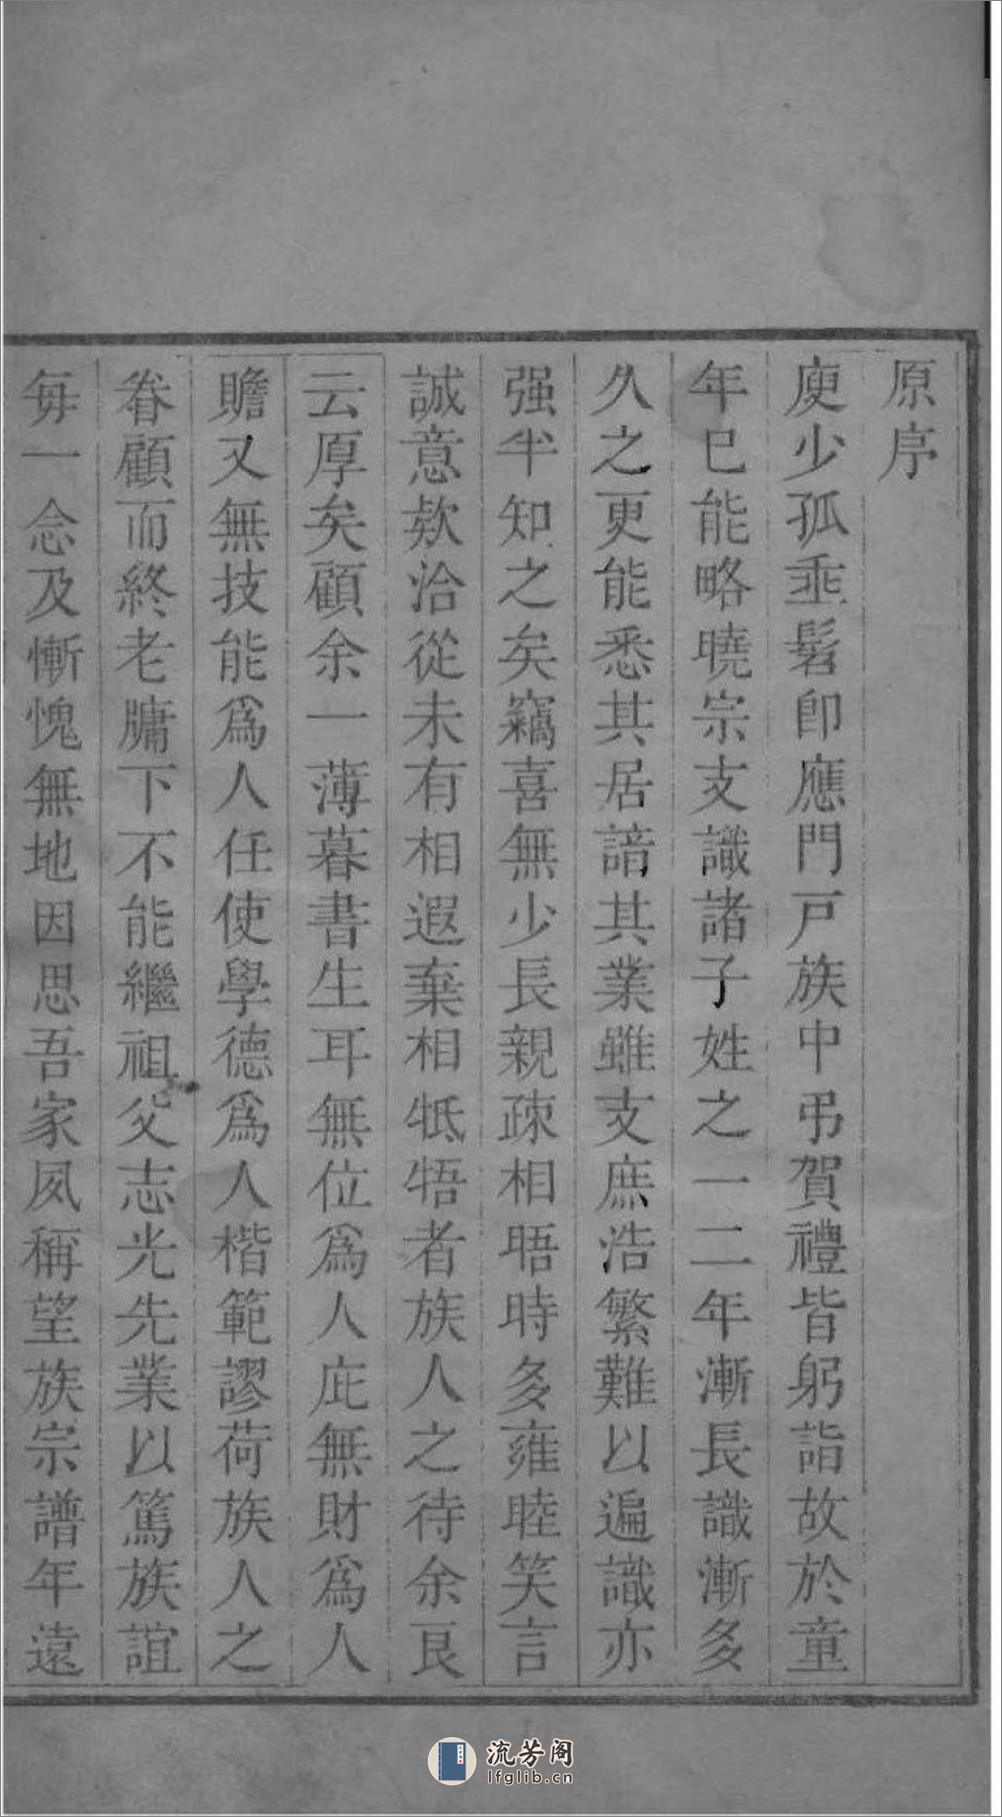 原序
庾少孤垂髫卽應門戸族中弔賀禮皆躬詣故於童
年已能略曉宗支識諸子姓之一二年漸長識漸多
久之更能悉其居諳其業雖支庶浩繁難以遍識亦
强半知之矣竊喜無少長親疎相晤時多雍睦笑言
誠意欵洽從未有相遐棄相牴牾者族人之待余良
云厚矣顧余一薄暮書生耳無位爲人庇無財爲人
贍又無技能爲人任使學德爲人楷範謬荷族人之
眷顧而終老牖下不能繼祖父志光先業以篤族誼
每一念及慚愧無地因思吾家夙稱望族宗譜年遠
流芳阁
lfglib.cn